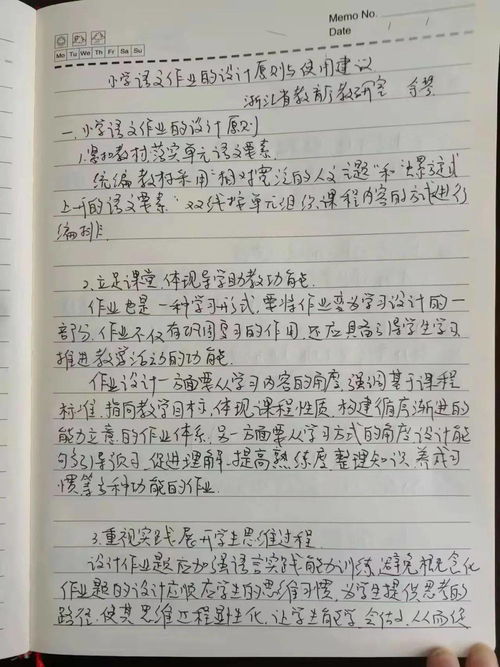 Memo No.
Date
Mo Tu We Th Fr Sa Su
小学语文作业的设计原则与使用建议
浙江省教育厅教研室 余琴
一、小学语文作业的设计原则
1.紧扣教材,落实单元语文要素.
统编教材采用"相对宽泛的人文主题"和"螺旋式
上升的语文要素"双线按单元组织课程内容的方式进行
编排.
2.立足课堂,体现导学助教功能.
作业也是一种学习形式,要将作业变为学习设计的一
部分.作业不仅有巩固复习的作用,还应具有引导学生学习、
推进教学活动的功能.
作业设计一方面要从学习内容的角度,强调基于课程
标准,指向教学目标,体现课程性质,构建循序渐进的
能力立意的作业体系.另一方面要从学习方式的角度设计能
够引导预习,促进理解,提高熟练度,整理知识,养成习
惯等多种功能的作业.
3.重视实践,展开学生思维过程.
设计作业题应加强语言实践能力训练,避免概念化.
作业题的设计应顺应学生的思维习惯,为学生提供思考的
路径,使其思维过程显性化,让学生能学会估,从而促